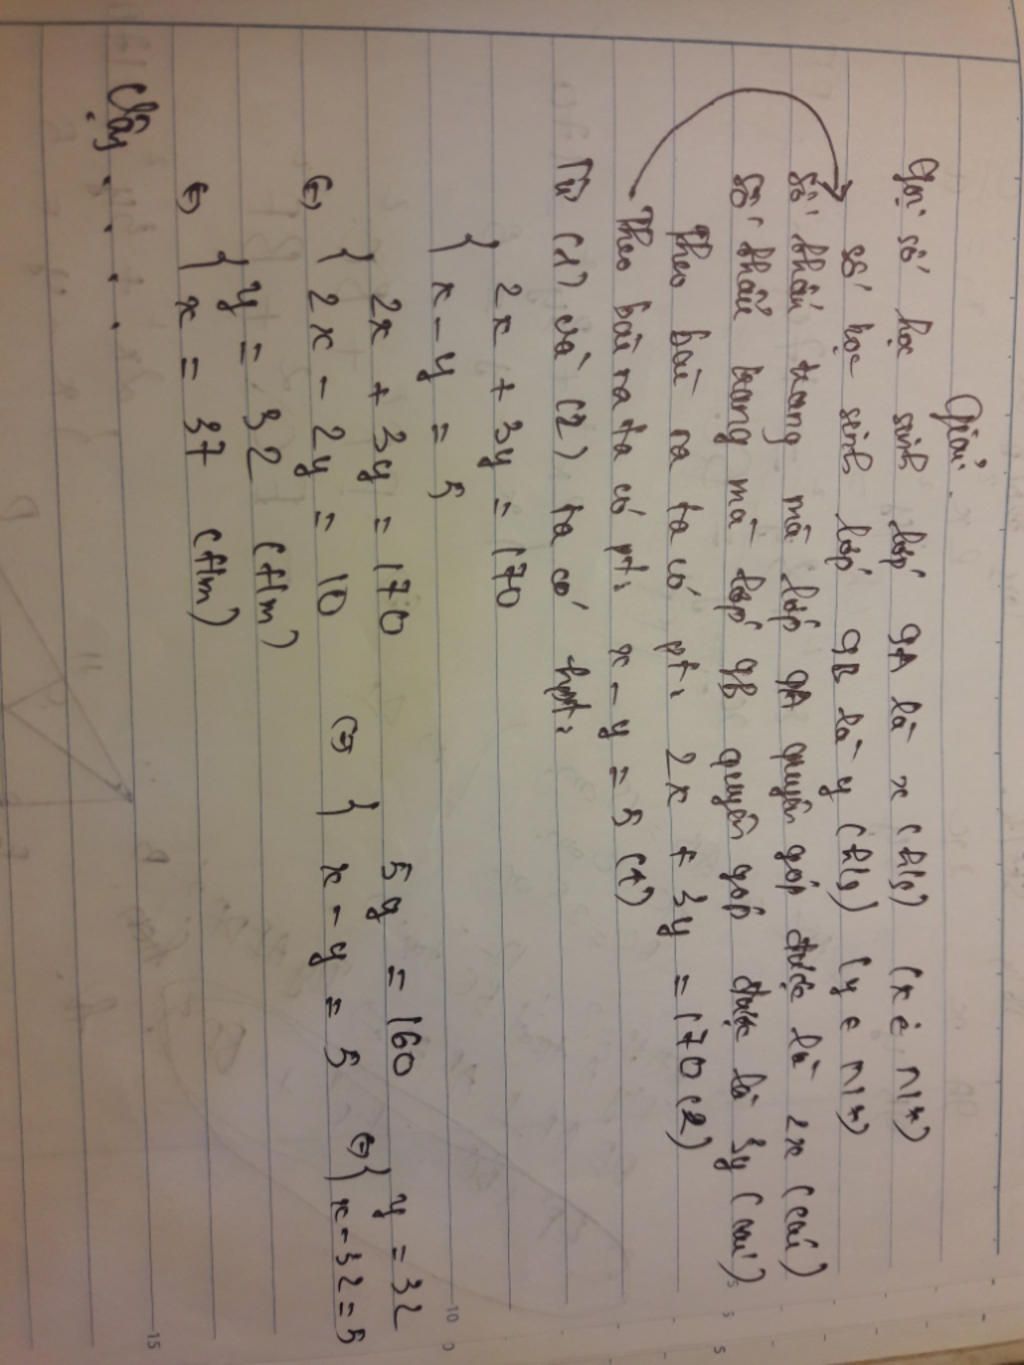 Giải.
Gọi số học sinh lớp 9A là x (h/s) (x є N*)
số học sinh lớp 9B là y (h/s) (y є N*)
số khẩu trang mà lớp 9A quyên góp được là 2x (cái)
số khẩu trang mà lớp 9B quyên góp được là 3y (cái)
Theo bài ra ta có pt: 2x + 3y = 170 (2)
Theo bài ra ta có pt: x - y = 5 (1)
Từ (1) và (2) ta có hpt:
{ 2x + 3y = 170
x - y = 5
⇔ { 2x + 3y = 170
2x - 2y = 10
⇔ { 5y = 160
x - y = 5
⇔ { y = 32
x - 32 = 5
⇔ { y = 32 (t/m)
x = 37 (t/m)
Vậy . . . .
10
15
5